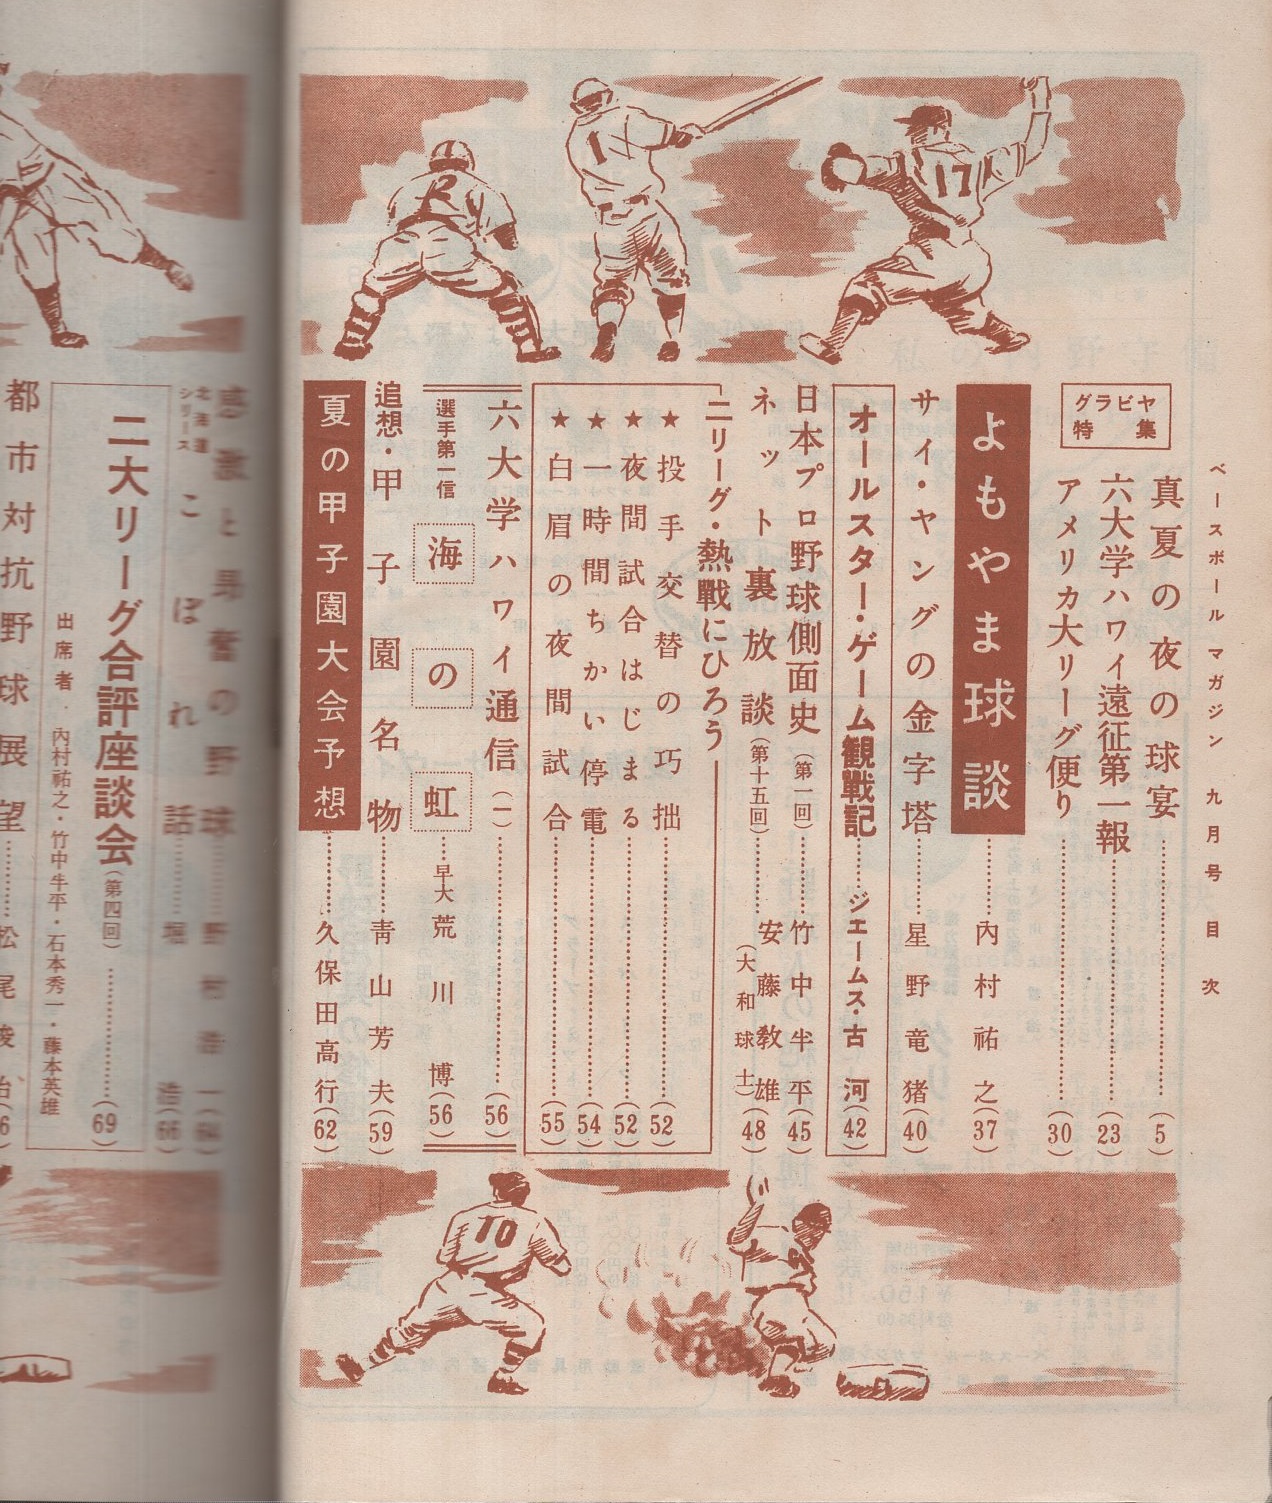 ベースボールマガジン 九月号 目次
グラビヤ
特集
真夏の夜の球宴……(5)
六大学ハワイ遠征第一報……(23)
アメリカ大リーグ便り……(30)
よもやま球談……內村祐之(37)
サイ・ヤングの金字塔……星野竜猪(40)
オールスター・ゲーム観戰記……ジエームス・古河(42)
日本プロ野球側面史(第一回)……竹中半平(45)
ネット裏放談(第十五回)……安藤教雄(大和球士)(48)
二リーグ・熱戰にひろう
★投手交替の巧拙……(52)
★夜間試合はじまる……(52)
★一時間ちかい停電……(54)
★白眉の夜間試合……(55)
六大学ハワイ通信(一)……(56)
選手第一信 海の虹……早大 荒川博(56)
追想・甲子園名物……靑山芳夫(59)
夏の甲子園大会予想……久保田高行(62)
感激と昻奮の野球……野村浩一(64)
北海道
シリース
こぼれ話……堀浩(66)
二大リーグ合評座談会(第四回)……(69)
出席者・內村祐之・竹中半平・石本秀一・藤本英雄
都市対抗野球展望……松尾俊治